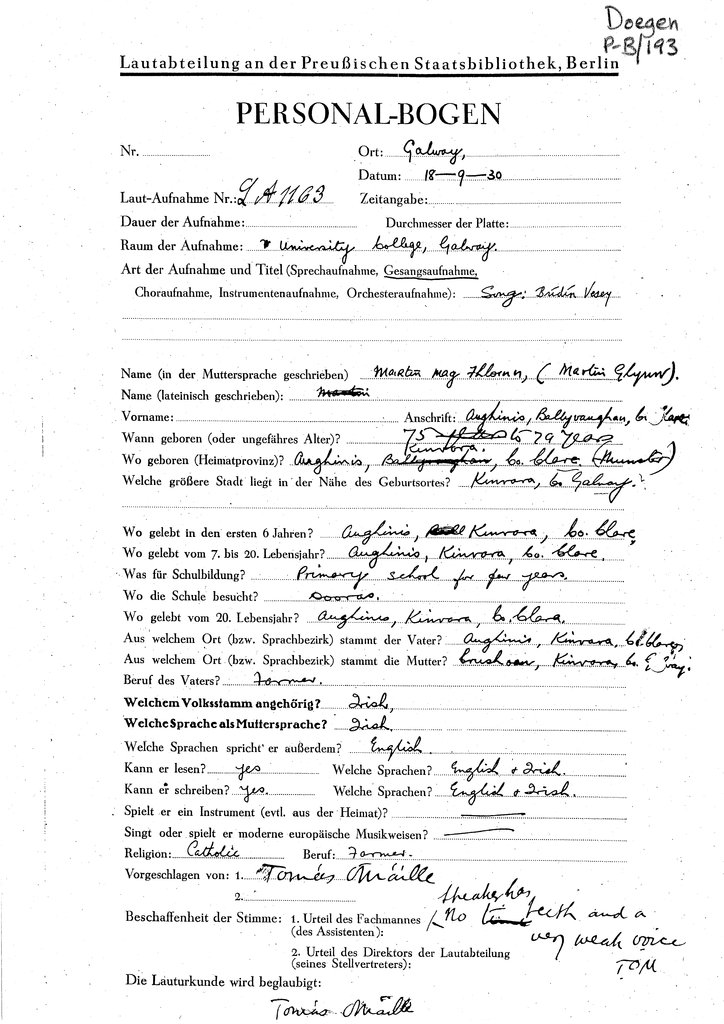 Doegen
P-B/193
Lautabteilung an der Preußischen Staatsbibliothek, Berlin
PERSONAL-BOGEN
Nr. Ort: Galway,
Datum: 18—9—30
Laut-Aufnahme Nr.: LA 1163 Zeitangabe:
Dauer der Aufnahme: Durchmesser der Platte:
Raum der Aufnahme: University College, Galway.
Art der Aufnahme und Titel (Sprechaufnahme, Gesangsaufnahme,
Choraufnahme, Instrumentenaufnahme, Orchesteraufnahme): Song: Brídín Vesey
Name (in der Muttersprache geschrieben) Martin Mag Fhloinn, (Martin Glynn).
Name (lateinisch geschrieben):
Vorname: Anschrift: Aughinis, Ballyvaughan, Co. Clare
Wann geboren (oder ungefähres Alter)? 75 to 79 years
Kinvora.
Wo geboren (Heimatprovinz)? Aughinis, Ballyvaughan, Co. Clare (Munster)
Welche größere Stadt liegt in der Nähe des Geburtsortes? Kinvara, Co Galway.
Wo gelebt in den ersten 6 Jahren? Aughinis, Kinvara, Co. Clare,
Wo gelebt vom 7. bis 20. Lebensjahr? Aughinis, Kinvara, Co. Clare.
Was für Schulbildung? Primary school for few years.
Wo die Schule besucht? Dooras.
Wo gelebt vom 20. Lebensjahr? Aughinis, Kinvara, Co. Clare.
Aus welchem Ort (bzw. Sprachbezirk) stammt der Vater? Aughinis, Kinvara, Co. Clare,
Aus welchem Ort (bzw. Sprachbezirk) stammt die Mutter? Crushoan, Kinvara, Co. Galway.
Beruf des Vaters? Farmer.
Welchem Volksstamm angehörig? Irish,
Welche Sprache als Muttersprache? Irish.
Welche Sprachen spricht er außerdem? English
Kann er lesen? yes Welche Sprachen? English + Irish.
Kann er schreiben? yes. Welche Sprachen? English + Irish.
Spielt er ein Instrument (evtl. aus der Heimat)? —
Singt oder spielt er moderne europäische Musikweisen? —
Religion: Catholic Beruf: Farmer.
Vorgeschlagen von: 1. Tomás Ó Máille
2.
Speaker has
Beschaffenheit der Stimme: 1. Urteil des Fachmannes No teeth and a
(des Assistenten): very weak voice
2. Urteil des Direktors der Lautabteilung TOM
(seines Stellvertreters):
Die Lauturkunde wird beglaubigt:
Tomás Ó Máille